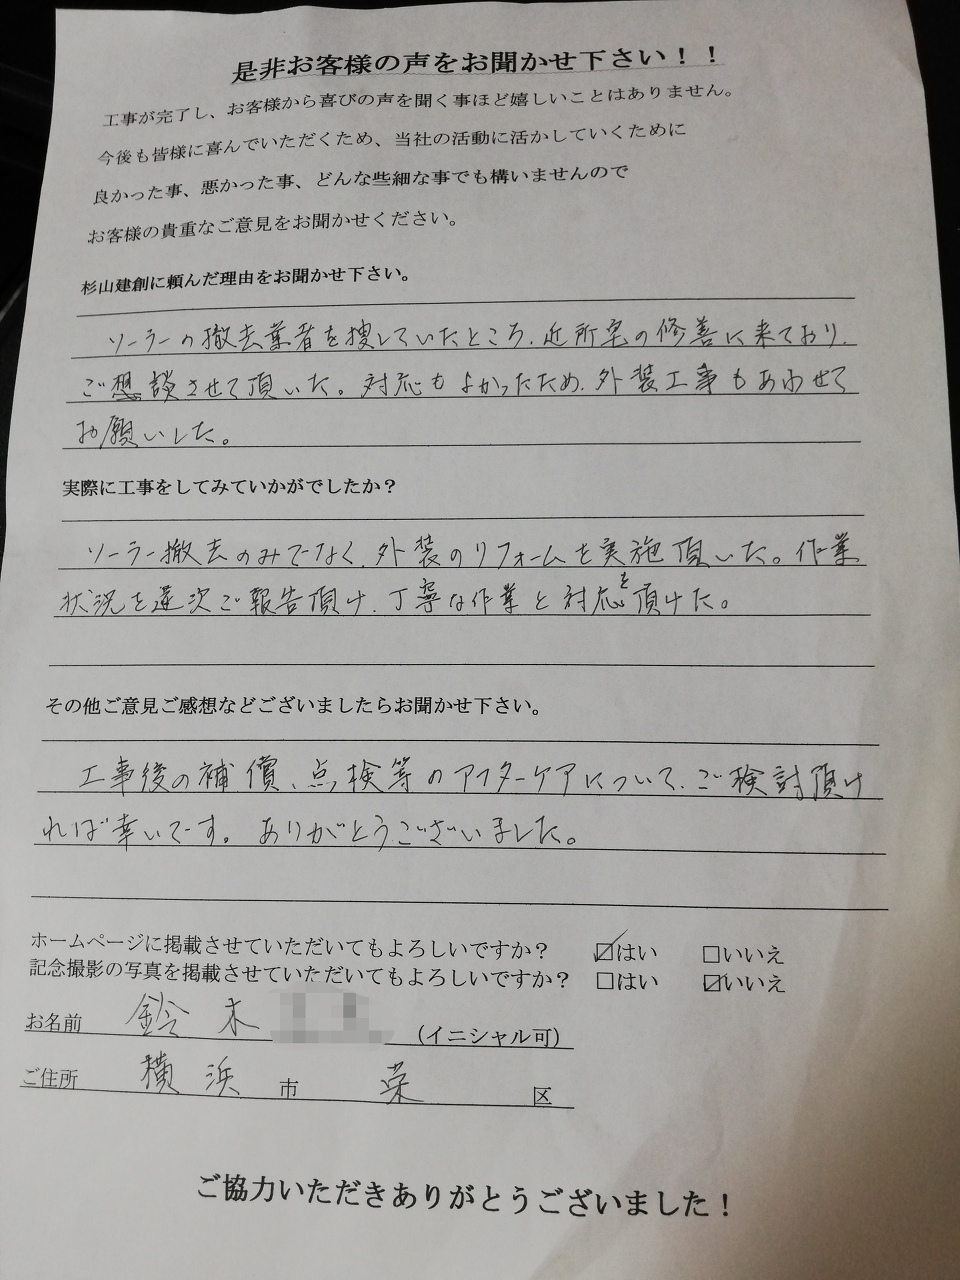 是非お客様の声をお聞かせ下さい！！
工事が完了し、お客様から喜びの声を聞く事ほど嬉しいことはありません。
今後も皆様に喜んでいただくため、当社の活動に活かしていくために
良かった事、悪かった事、どんな些細な事でも構いませんので
お客様の貴重なご意見をお聞かせください。
杉山建創に頼んだ理由をお聞かせ下さい。
ソーラーの撤去業者を捜していたところ、近所宅の修善に来ており、
ご想談させて頂いた。対応もよかったため、外装工事もあわせて
お願いした。
実際に工事をしてみていかがでしたか？
ソーラー撤去のみでなく、外装のリフォームを実施頂いた。作業
状況を逐次ご報告頂け、丁寧な作業と対応を頂けた。
その他ご意見ご感想などございましたらお聞かせ下さい。
工事後の補償、点検等のアフターケアについて、ご検討頂け
れば幸いです。ありがとうございました。
ホームページに掲載させていただいてもよろしいですか？ ☑はい □いいえ
記念撮影の写真を掲載させていただいてもよろしいですか？ □はい ☑いいえ
お名前 鈴木 (イニシャル可)
ご住所 横浜市 栄区
ご協力いただきありがとうございました！